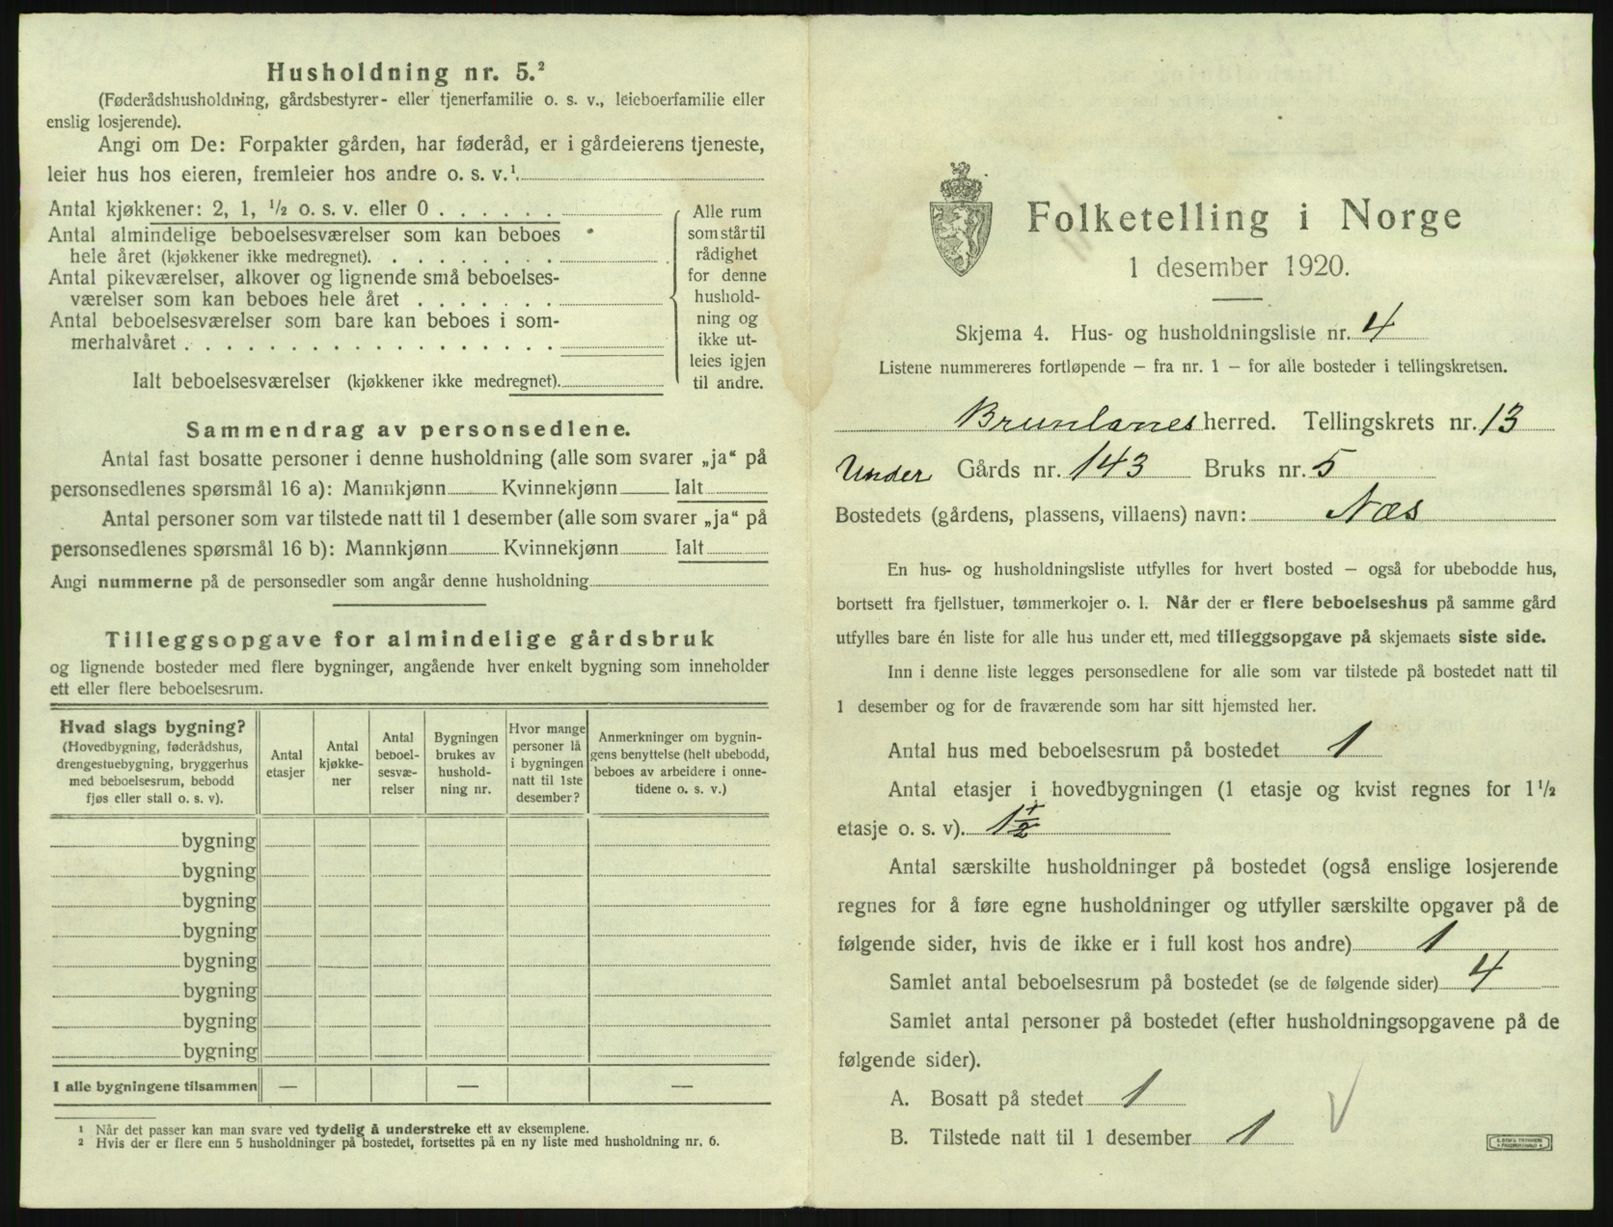 Husholdning nr. 5.²
(Føderådshusholdning, gårdsbestyrer- eller tjenerfamilie o. s. v., leieboerfamilie eller
enslig losjerende).
Angi om De: Forpakter gården, har føderåd, er i gårdeierens tjeneste,
leier hus hos eieren, fremleier hos andre o. s. v.¹.
Antal kjøkkener: 2, 1, ¹/₂ o. s. v. eller 0
Antal almindelige beboelsesværelser som kan beboes
hele året (kjøkkener ikke medregnet).
Antal pikeværelser, alkover og lignende små beboelses-
værelser som kan beboes hele året
Antal beboelsesværelser som bare kan beboes i som-
merhalvåret
Ialt beboelsesværelser (kjøkkener ikke medregnet).
Alle rum
som står til
rådighet
for denne
hushold-
ning og
ikke ut-
leies igjen
til andre.
Sammendrag av personsedlene.
Antal fast bosatte personer i denne husholdning (alle som svarer „ja“ på
personsedlenes spørsmål 16 a): Mannkjønn Kvinnekjønn Ialt
Antal personer som var tilstede natt til 1 desember (alle som svarer „ja“ på
personsedlenes spørsmål 16 b): Mannkjønn Kvinnekjønn Ialt
Angi nummerne på de personsedler som angår denne husholdning
Tilleggsopgave for almindelige gårdsbruk
og lignende bosteder med flere bygninger, angående hver enkelt bygning som inneholder
ett eller flere beboelsesrum.
Hvad slags bygning?
(Hovedbygning, føderådshus,
drengestuebygning, bryggerhus
med beboelsesrum, bebodd
fjøs eller stall o. s. v).
Antal
etasjer
Antal
kjøkke-
ner
Antal
beboel-
sesvæ-
relser
Bygningen
brukes av
hushold-
ning nr.
Hvor mange
personer lå
i bygningen
natt til 1ste
desember?
Anmerkninger om bygnin-
gens benyttelse (helt ubebodd,
beboes av arbeidere i onne-
tidene o. s. v.)
bygning
bygning
bygning
bygning
bygning
bygning
bygning
bygning
I alle bygningene tilsammen — — —
¹ Når det passer kan man svare ved tydelig å understreke ett av eksemplene.
² Hvis der er flere enn 5 husholdninger på bostedet, fortsettes på en ny liste med husholdning nr. 6.
Folketelling i Norge
1 desember 1920.
Skjema 4. Hus- og husholdningsliste nr. 4
Listene nummereres fortløpende — fra nr. 1 — for alle bosteder i tellingskretsen.
Brunlanes herred. Tellingskrets nr. 13
Under Gårds nr. 143 Bruks nr. 5
Bostedets (gårdens, plassens, villaens) navn: Næs
En hus- og husholdningsliste utfylles for hvert bosted — også for ubebodde hus,
bortsett fra fjellstuer, tømmerkojer o. l. Når der er flere beboelseshus på samme gård
utfylles bare én liste for alle hus under ett, med tilleggsopgave på skjemaets siste side.
Inn i denne liste legges personsedlene for alle som var tilstede på bostedet natt til
1 desember og for de fraværende som har sitt hjemsted her.
Antal hus med beboelsesrum på bostedet 1
Antal etasjer i hovedbygningen (1 etasje og kvist regnes for 1 ¹/₂
etasje o. s. v). 1 ½
Antal særskilte husholdninger på bostedet (også enslige losjerende
regnes for å føre egne husholdninger og utfyller særskilte opgaver på de
følgende sider, hvis de ikke er i full kost hos andre) 1
Samlet antal beboelsesrum på bostedet (se de følgende sider) 4
Samlet antal personer på bostedet (efter husholdningsopgavene på de
følgende sider).
A. Bosatt på stedet 1
B. Tilstede natt til 1 desember 1